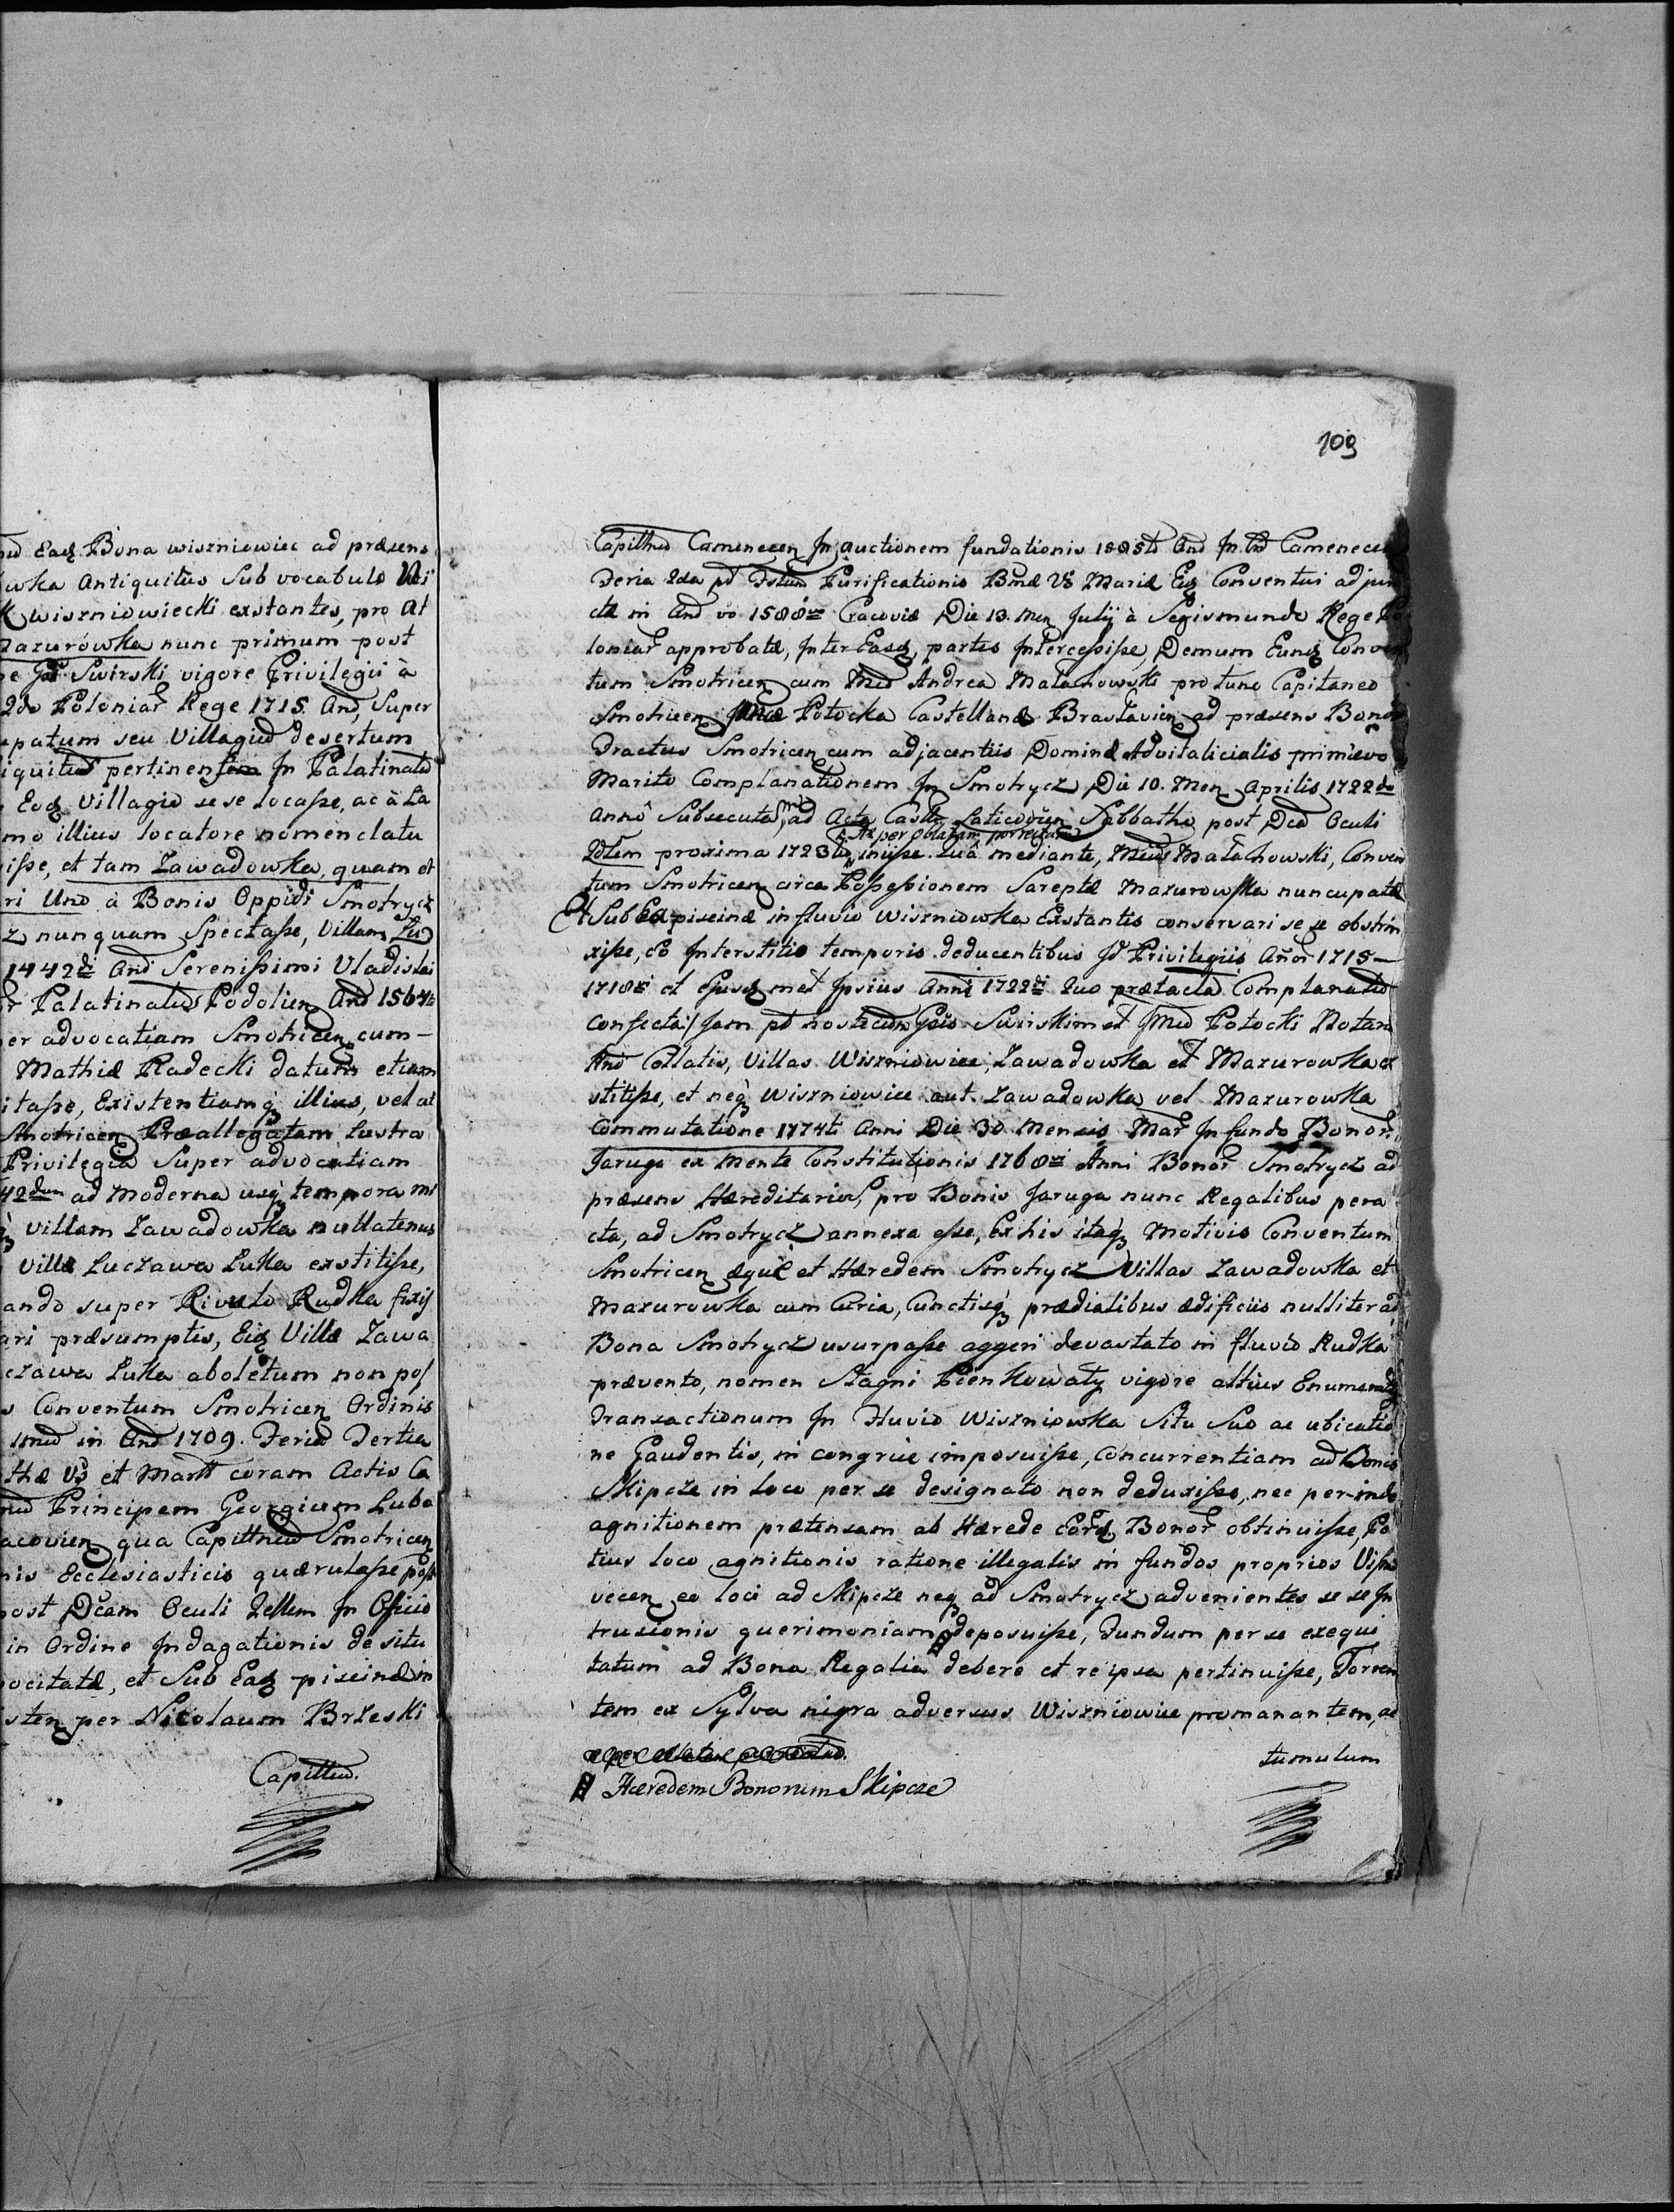 Eaq Bona wiszniowiec ad præsens
wka Antiquitus Sub vocabulo
K wiszniowiecki exstantes, pro
Mazurowka nunc primum post
Swirski vigore Privilegii à
2do Poloniar Rege 1715. Ano, Super
patum seu Villagiu desertum
iquitus pertinen In Palatinatu
Eoq Villagio se se locasse, ac à La
mo illius locatore nomenclatu
isse, et tam Zawadowka, quam et
ri Uno à Bonis Oppidi Smotrycz
z nunquam Spectasse, Villam
1442di Ano Serenissimi Vladislai
r Palatinatus Podolien Ano 1564ti
er advocatiam Smotricen cum –
Mathiæ Radecki datum etiam
itasse, Existentiamq illius, vel at
Smotricen Præallegatam Lustra
Privilegia Super advocatiam
42dum ad moderna usq tempora
q villam Zawadowka nullatenus
Villæ Luczawa Luka exstitisse,
ando super Rivulo Rudka
ari præsumptis, Eiq Villæ Zawa
czawa Luka aboletum non pos
s Conventum Smotricen Ordinis
in Ano 1709. Feria Tertia
thæ Vs et Mart coram Actis Ca
Principem Georgium Lubo
acovien qua Capitneu Smotricen
nis Ecclesiasticis quærulasse post
post Dcam Oculi In Officio
in Ordine Indagationis de situ
ocitatæ, et Sub Eaq piscinæ in
sten per Nicolaum Brzeski
Capittneu.
109
Capittneu Camenecen In auctionem fundationis Ano In Camenecen
Feria 2da Purificationis Bmæ Vs Mariæ Eiq Conventui adjun
ctæ in Ano vo Cracoviæ Die 13. Men Julij à Segismundo Rege Po
loniar approbatæ, Inter Easq, partes Intercessisse, Demum Eunq Conven
tum Smotricen cum Andrea Małachowski pro tunc Capitaneo
Smotricen Potocka Castellanæ Brasłavien ad præsens Bonor
Tractus Smotricen cum adjacentiis Dominæ Advitalicialis primævo
Marito Complanationem In Smotrycz Die 10. Men Aprilis 1722do
Anno Subsecuta, ad Acta Castr Laticovien Sabbatho post Oculi
Ac per oblatam porrectam
proxima 1723tio, iniisse. Quâ mediante, Małachowski, Conven
tum Smotricen circa Possessionem Sareptæ Mazurowka nuncupatæ
Et Sub Ea piscinæ in fluvio Wiszniowka Exstantis conservari se se obstrin
xisse, Eo Interstitio temporis deducentibus Id Privilegiis Anor 1715 –
1718vi et Ejusq met Ipsius Anni 1722di quo prætacta Complanatio
confecta/ Jam Swirskimet Potocki Notar
Collatis, Villas Wiszniowiec, Zawadowka et Mazurowka ex
stitisse, et neq Wiszniowiec aut Zawadowka vel Mazurowka
Commutatione 1774ti Anni Die 30 Mensis Mar In fundo Bonor
Jaruga ex Mente Constitutionis 1768vi Anni Bonor Smotrycz ad
præsens Hæreditarior, pro Bonis Jaruga nunc Regalibus pera
cta, ad Smotrycz annexa esse, Ex his itaq Motivis Conventum
Smotricen æque et Hæredem Smotrycz Villas Zawadowka et
Mazurowka cum Curia, Cunctisq prædialibus ædificiis nulliter ad
Bona Smotrycz usurpasse aggeri devastato in fluvio Rudka
prævento, nomen Stagni Pienkowaty vigore altius Enumerat
Transactionum In Fluvio Wiszniowka Situ Suo ac ubicatio
ne Gaudentis, in congrue imposuisse, Concurrentiam ad Bonis
Skipcze in loco per se designato non deduxisse, nec per-inde
agnitionem prætensam ab Hærede Eorq Bonor obtinuisse, Po
tius loco agnitionis ratione illegalis in fundos proprios
vecen eo loci ad Skipcze neq ad Smotrycz advenientes se se In
trusionis querimoniam deposuisse, Fundum per se exequi
tatum ad Bona Regalia debere et re ipsa pertinuisse, Torren
tem ex Sylva nigra adversus Wiszniowiec promanantem, ac
tumulum
Hæredem Bonorum Skipcze